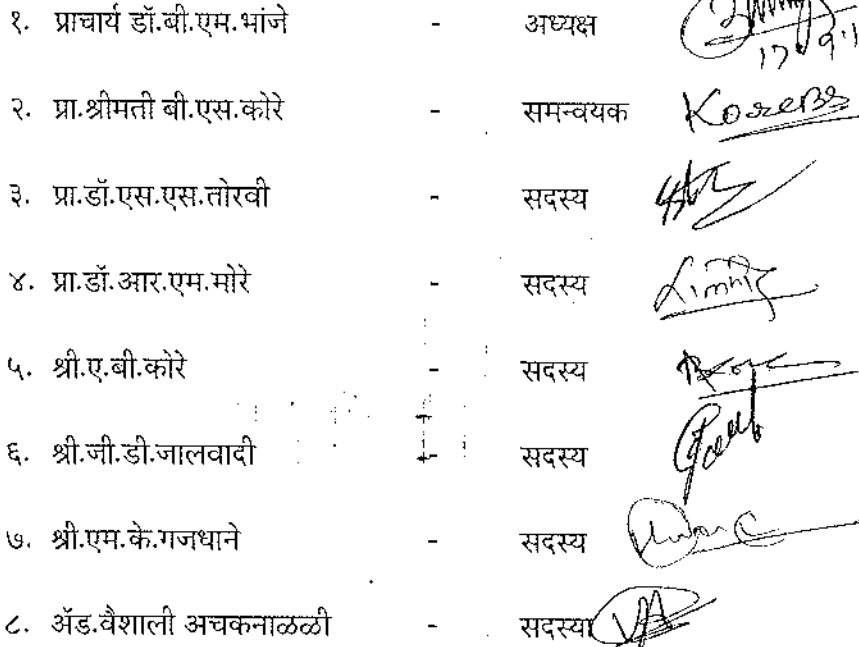 १. प्राचार्य डॉ.बी.एम.भांजे - अध्यक्ष
१७.९.१
२. प्रा.श्रीमती बी.एस.कोरे - समन्वयक KoreBS
३. प्रा.डॉ.एस.एस.तोरवी - सदस्य
४. प्रा.डॉ.आर.एम.मोरे - सदस्य
५. श्री.ए.बी.कोरे - सदस्य
६. श्री.जी.डी.जालवादी - सदस्य
७. श्री.एम.के.गजधाने - सदस्य
८. ॲड.वैशाली अचकनाळळी - सदस्या VA